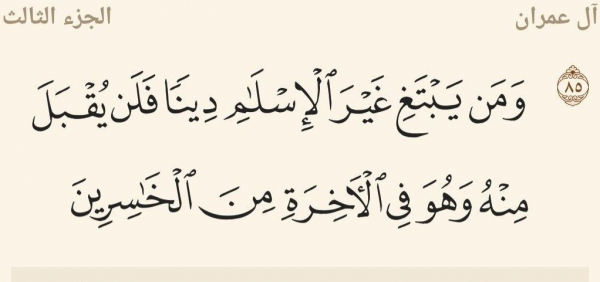 آل عمران الجزء الثالث
٨٥ وَمَن يَبْتَغِ غَيْرَ ٱلْإِسْلَـٰمِ دِينًا فَلَن يُقْبَلَ
مِنْهُ وَهُوَ فِى ٱلْـَٔاخِرَةِ مِنَ ٱلْخَـٰسِرِينَ